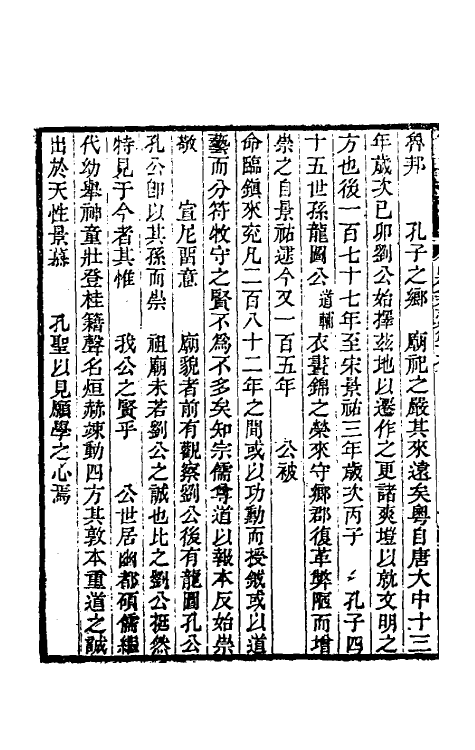 魯邦　孔子之鄉　廟祀之嚴其來遠矣粵自唐大中十三
年歲次己卯劉公始擇茲地以遷作之更諸爽塏以就文明之
方也後一百七十七年至宋景祐三年歲次丙子　孔子四
十五世孫龍圖公道輔衣晝錦之榮來守鄉郡復革弊陋而增
崇之自景祐迄今又一百五年　公被
命臨鎮來兖凡二百八十二年之間或以功勳而授鉞或以道
藝而分符牧守之賢不為不多矣知宗儒尊道以報本反始崇
敬　宣尼留意　廟貌者前有觀察劉公後有龍圖孔公
孔公卽以其孫而崇　祖廟未若劉公之誠也比之劉公挺然
特見于今者其惟　我公之賢乎　公世居幽都碩儒繼
代幼舉神童壯登桂籍聲名烜赫竦動四方其敦本重道之誠
出於天性景慕　孔聖以見願學之心焉